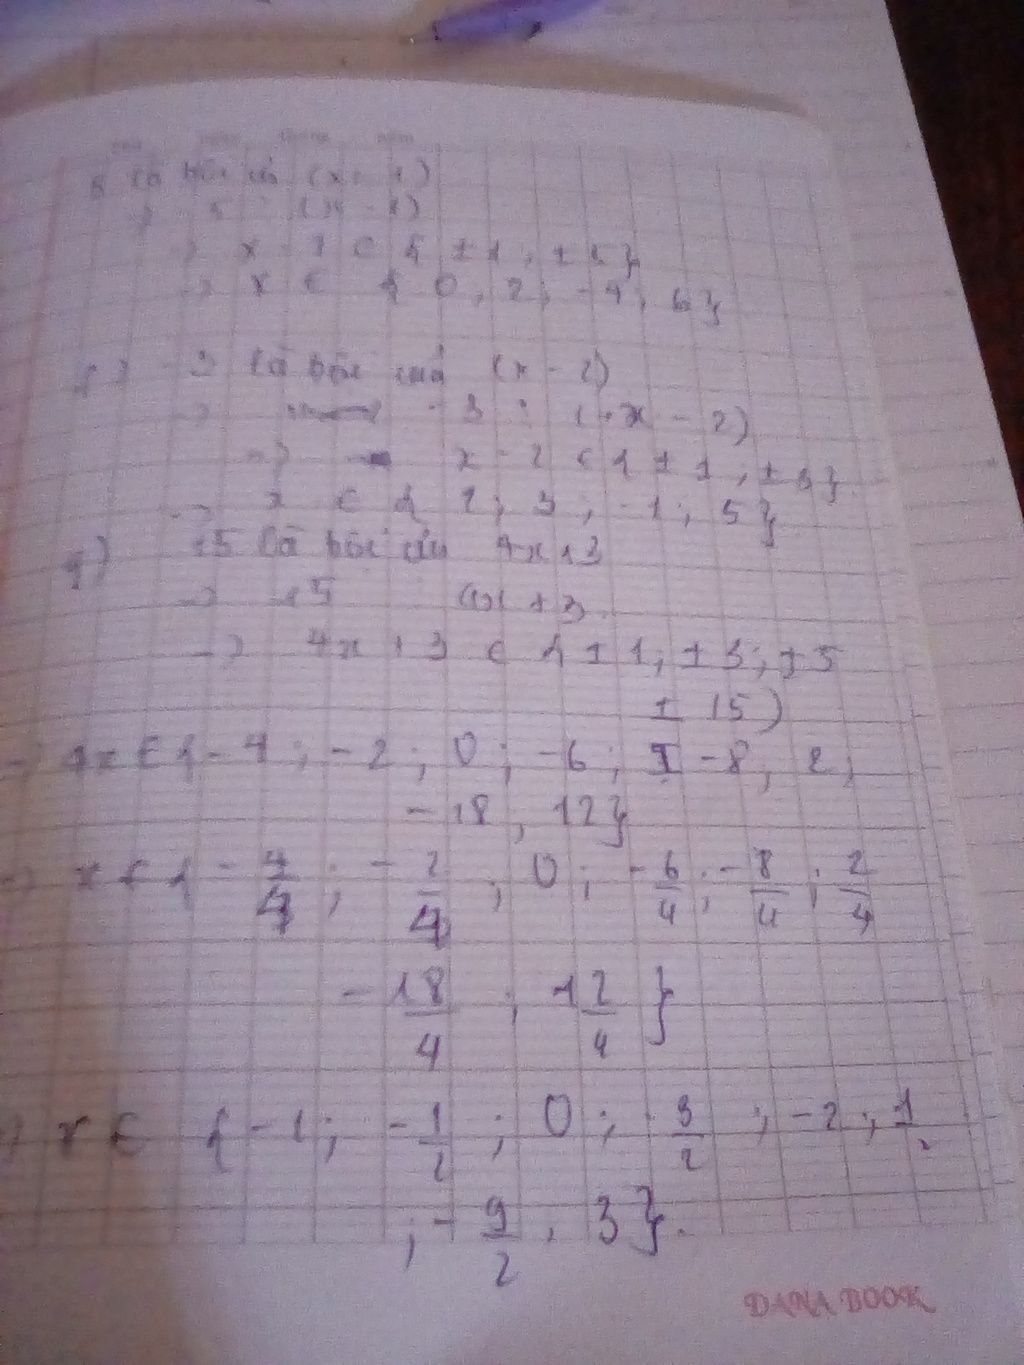 5 là bội của (x - 1)
→ 5 (x - 1)
→ x - 1 ∈ { ± 1 ; ± 5 }
→ x ∈ { 0 ; 2 ; - 4 ; 6 }
- 3 là bội của (x - 2)
→ - 3 ⋮ ( x - 2)
→ x - 2 ∈ { ± 1 ; ± 3 }
→ x ∈ { 1 ; 3 ; - 1 ; 5 }
g) 15 là bội của 4x + 3
→ 15 4x + 3
→ 4x + 3 ∈ { ± 1 ; ± 3 ; ± 5
± 15 )
→ 4x ∈ { - 4 ; - 2 ; 0 ; - 6 ; - 8 ; 2 ;
- 18 ; 12 }
→ x ∈ { - 4/4 ; - 2/4 ; 0 ; - 6/4 ; - 8/4 ; 2/4
- 18/4 ; 12/4 }
→ x ∈ { - 1 ; - 1/2 ; 0 ; - 3/2 ; - 2 ; 1/2
; - 9/2 ; 3 }.
DANA BOOK